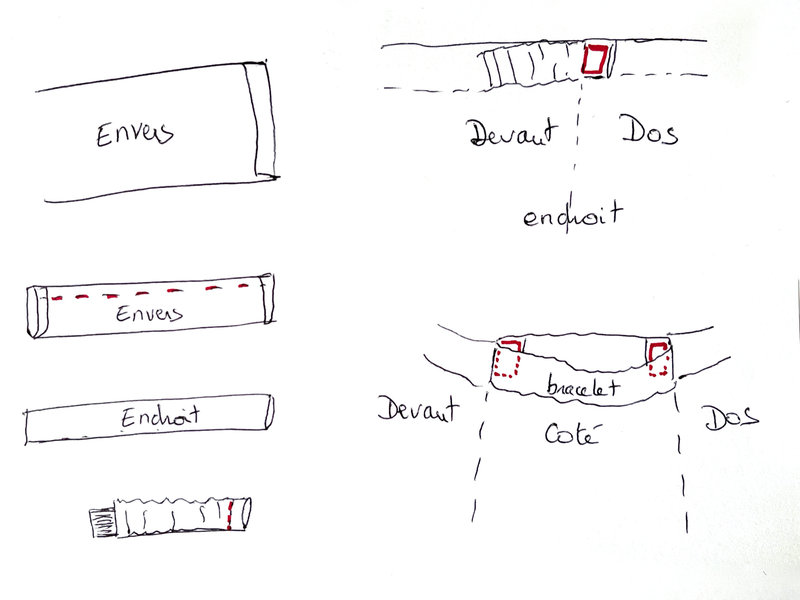 Envers
Envers
Endroit
Devant
Dos
endroit
bracelet
Devant
Coté
Dos